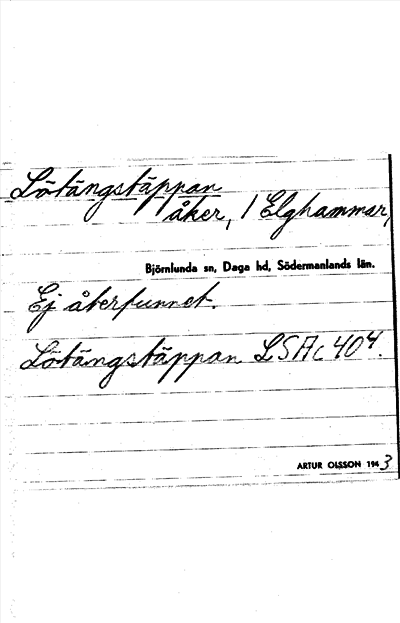 Lötängstäppan
åker, / Elghammar,
Björnlunda sn, Daga hd, Södermanlands län.
Ej återfunnet.
Lötängstäppan LSAc 404.
ARTUR OLSSON 1943